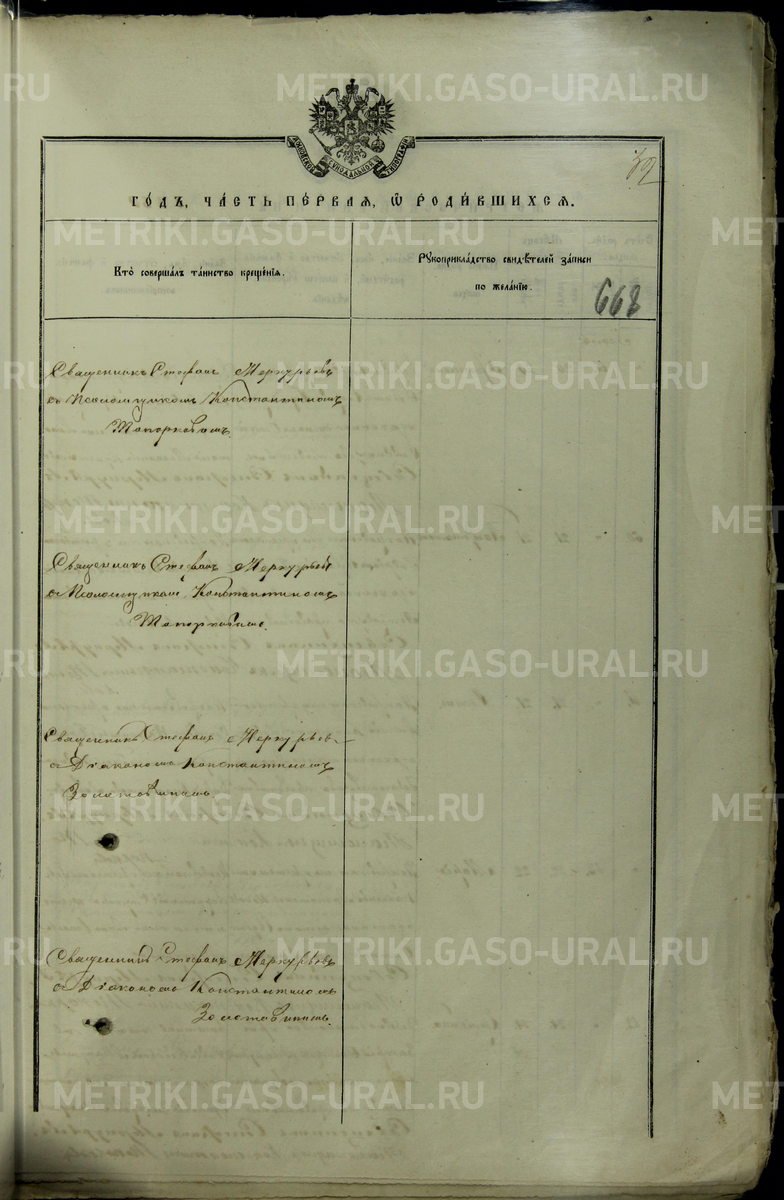 METRIKI.GASO-URAL.RU
39
ГО́ДЪ, ЧА́СТЬ ПЕ́РВАЯ, Ѡ РОДИ́ВШИХСЯ.
Кто̀ соверша́лъ та́инство креще́нія.
Рꙋкоприкла́дство свидѣ́телей за́писи
по жела́нію.
668
Священникъ Стефанъ Меркурьевъ
съ Псаломщикомъ Константиномъ
Топорковымъ.
Священникъ Стефанъ Меркурьев
с Псаломщикомъ Константиномъ
Топорковымъ.
Священникъ Стефанъ Меркурьев
с Діакономъ Константиномъ
Священникъ Стефанъ Меркурьевъ
с Діакономъ Константиномъ